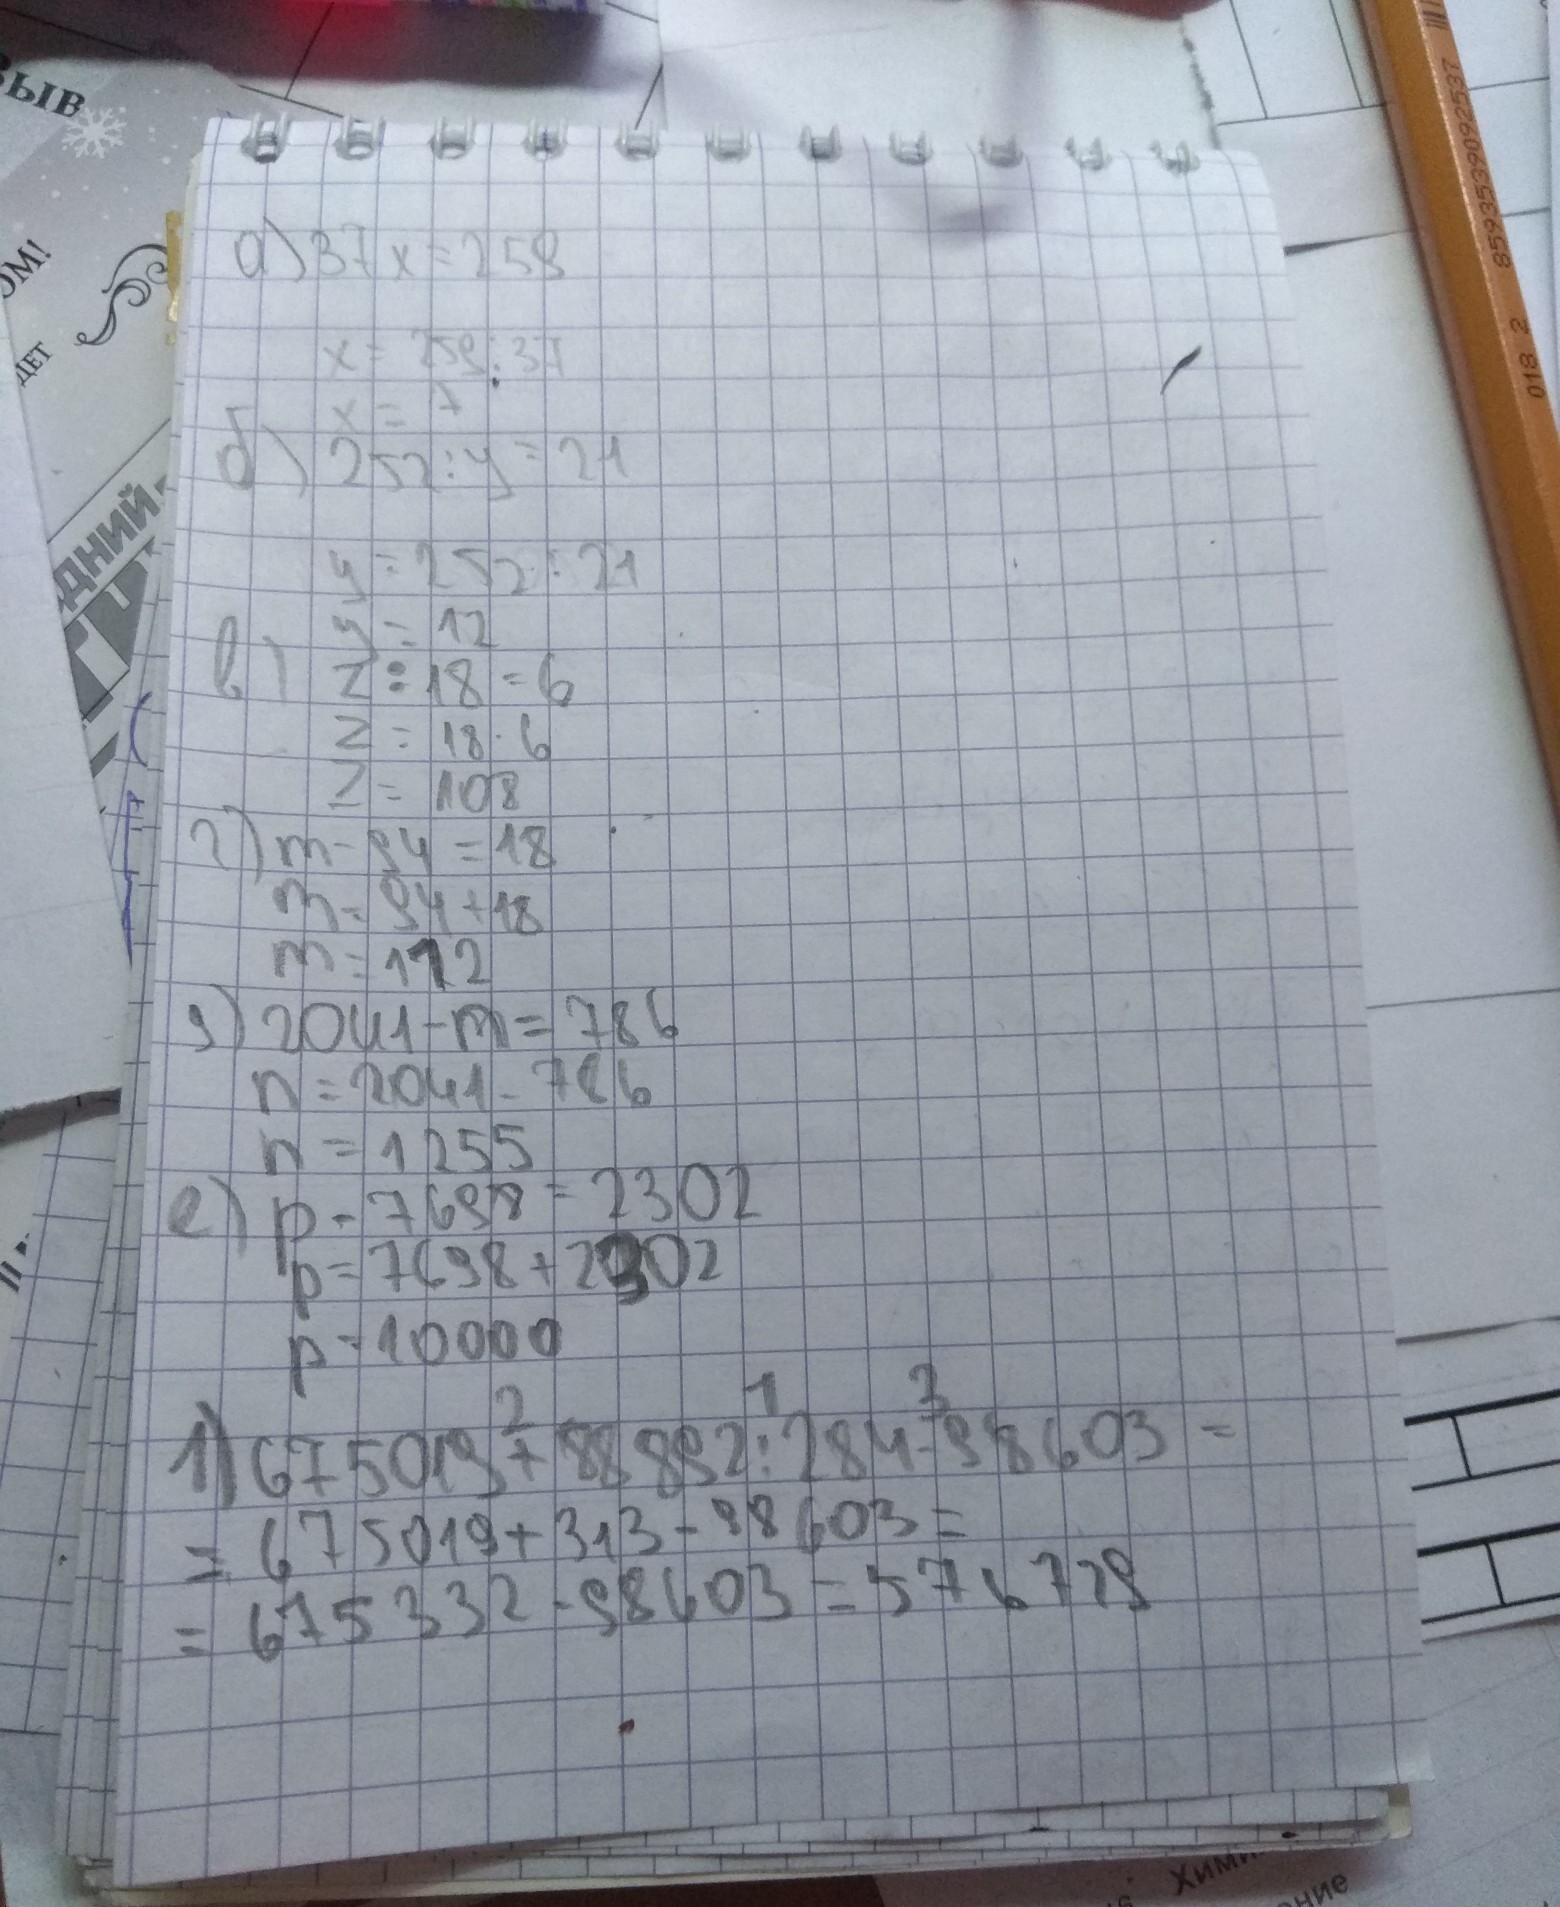 ЗЫВ
ОМ!
ДЕТ
ДНИЙ
8593539092537
018 2
а) 37x = 259
x = 259 : 37
x = 7
б) 252 : y = 21
y = 252 : 21
y = 12
в) z : 18 = 6
z = 18 · 6
z = 108
г) m - 94 = 18
m = 94 + 18
m = 112
д) 2041 - m = 786
n = 2041 - 786
n = 1255
е) p - 7698 = 2302
p = 7698 + 2302
p = 10000
2 1 3
1) 675019 + 88892 : 284 - 98603 =
= 675019 + 313 - 98603 =
= 675332 - 98603 = 576729
Хими
ение